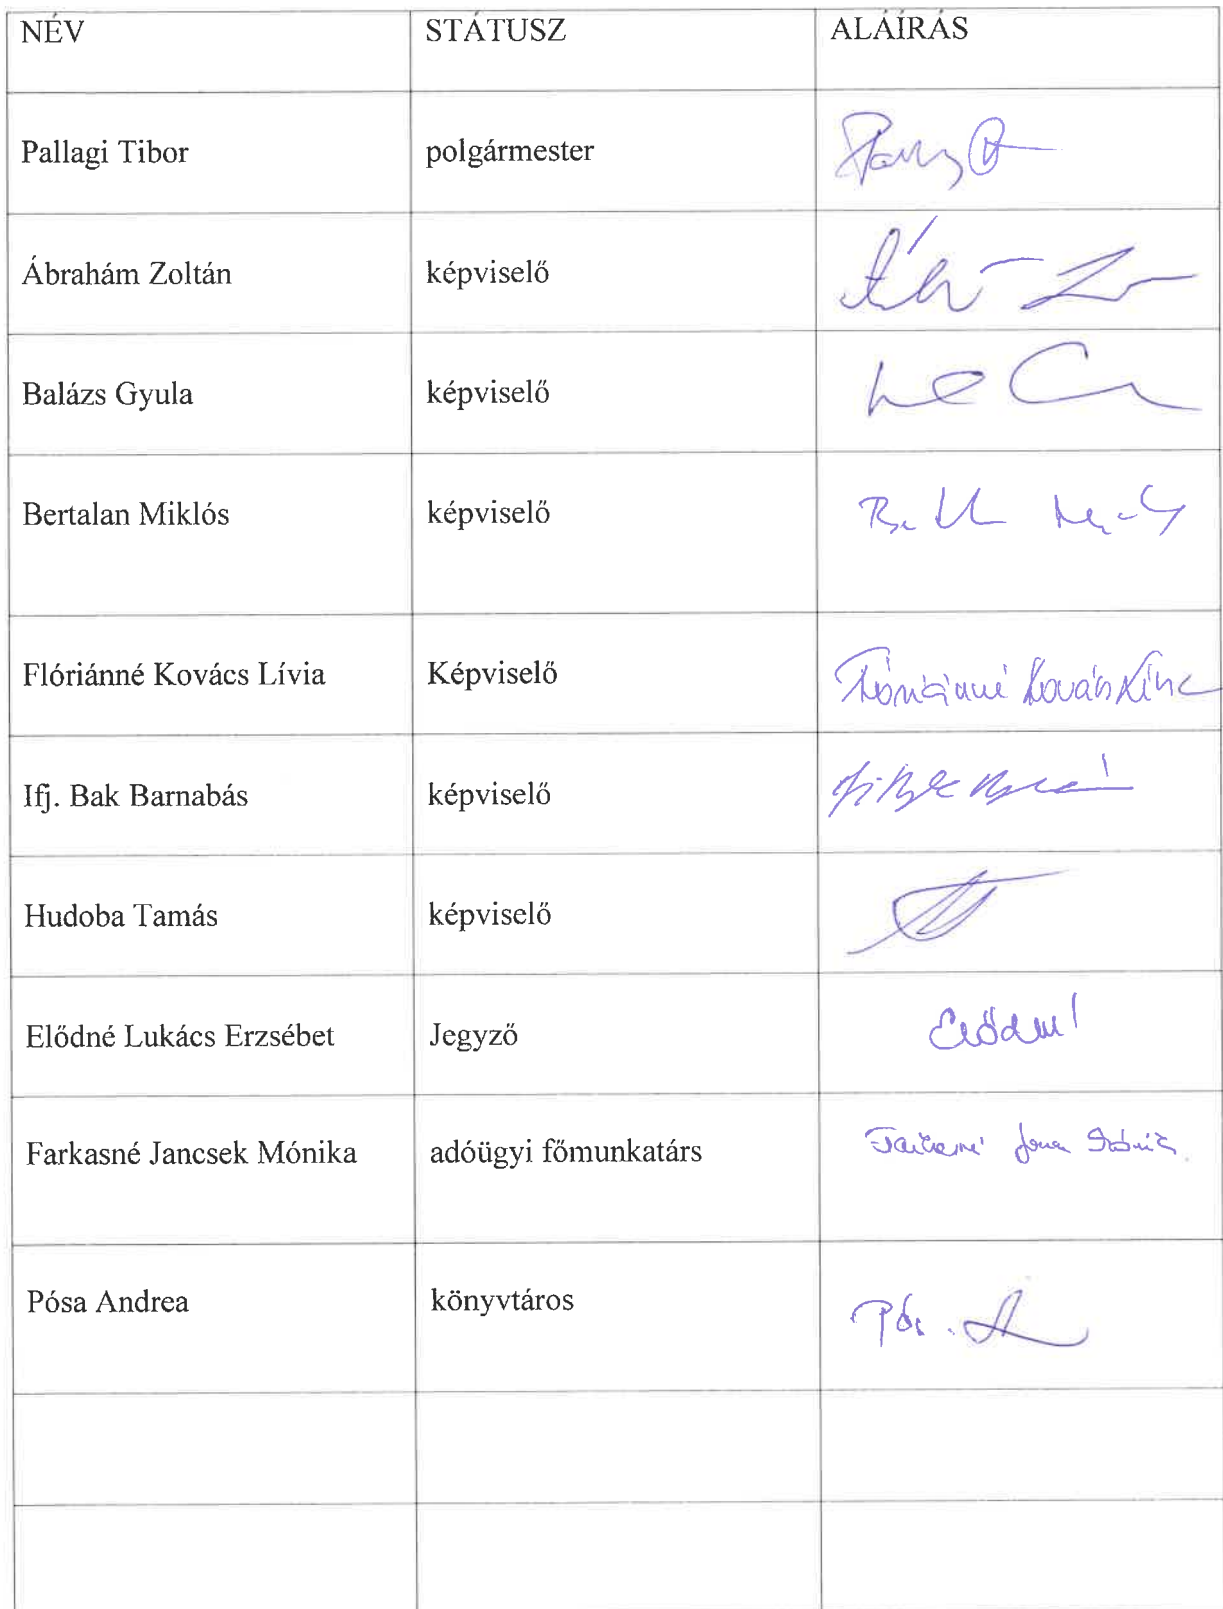 NÉV STÁTUSZ ALÁÍRÁS
Pallagi Tibor polgármester
Ábrahám Zoltán képviselő
Balázs Gyula képviselő
Bertalan Miklós képviselő
Flóriánné Kovács Lívia Képviselő Flóriánné Kovács Lívia
Ifj. Bak Barnabás képviselő
Hudoba Tamás képviselő
Elődné Lukács Erzsébet Jegyző Elődné
Farkasné Jancsek Mónika adóügyi főmunkatárs
Pósa Andrea könyvtáros